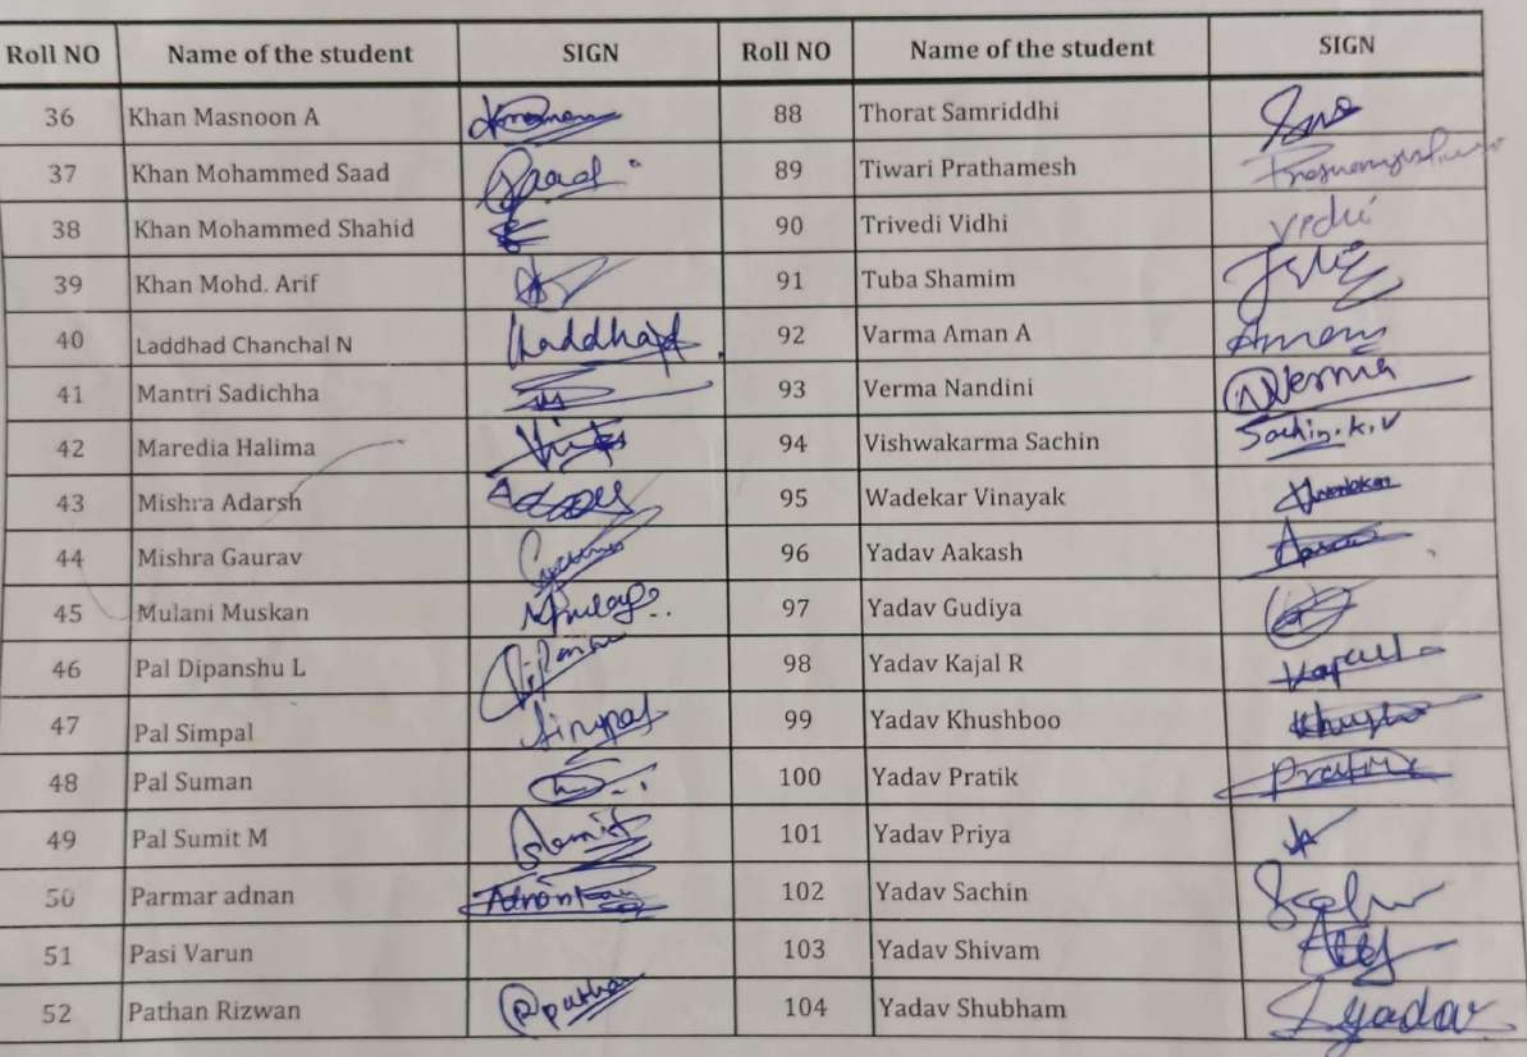 Roll NO Name of the student SIGN Roll NO Name of the student SIGN
36 Khan Masnoon A 88 Thorat Samriddhi
37 Khan Mohammed Saad Saad 89 Tiwari Prathamesh
38 Khan Mohammed Shahid 90 Trivedi Vidhi Vidhi
39 Khan Mohd. Arif 91 Tuba Shamim
40 Laddhad Chanchal N Laddhad 92 Varma Aman A Aman
41 Mantri Sadichha 93 Verma Nandini NVerma
42 Maredia Halima 94 Vishwakarma Sachin Sachin.K.V
43 Mishra Adarsh 95 Wadekar Vinayak
44 Mishra Gaurav 96 Yadav Aakash
45 Mulani Muskan 97 Yadav Gudiya
46 Pal Dipanshu L 98 Yadav Kajal R
47 Pal Simpal 99 Yadav Khushboo
48 Pal Suman 100 Yadav Pratik
49 Pal Sumit M 101 Yadav Priya
50 Parmar adnan 102 Yadav Sachin
51 Pasi Varun 103 Yadav Shivam
52 Pathan Rizwan 104 Yadav Shubham Syadav